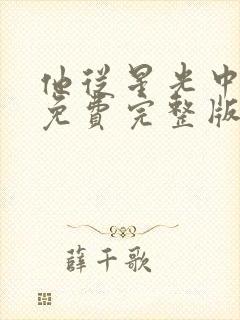 他從星光中
免費完整版
薛千歌